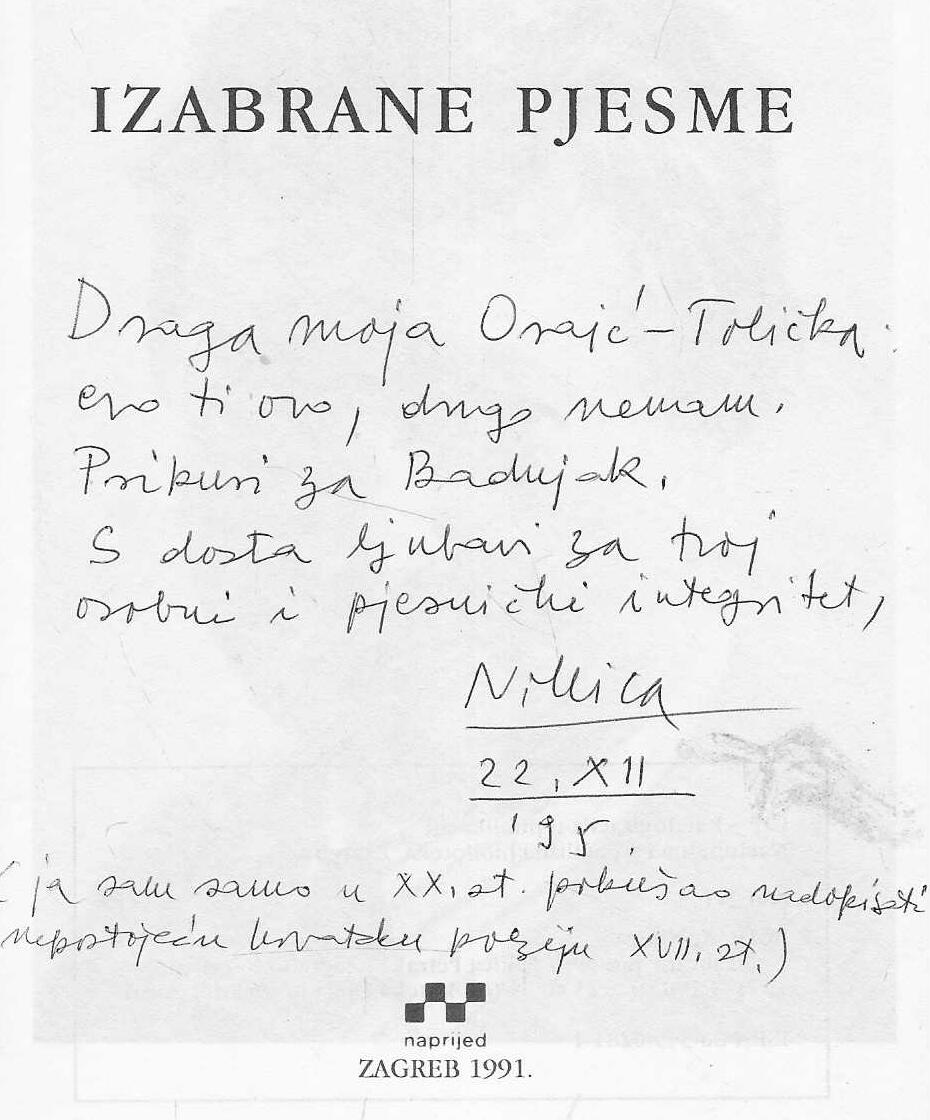 IZABRANE PJESME
Draga moja Oraić-Tolićka:
evo ti ovo, drugo nemam.
Prikuri za Badnjak.
S dosta ljubavi za tvoj
osobni i pjesnički integritet,
22. XII
'95.
(ja sam samo u XX. st. pokušao nadopisati
nepostojeću hrvatsku poeziju XVII. st.)
naprijed
ZAGREB 1991.